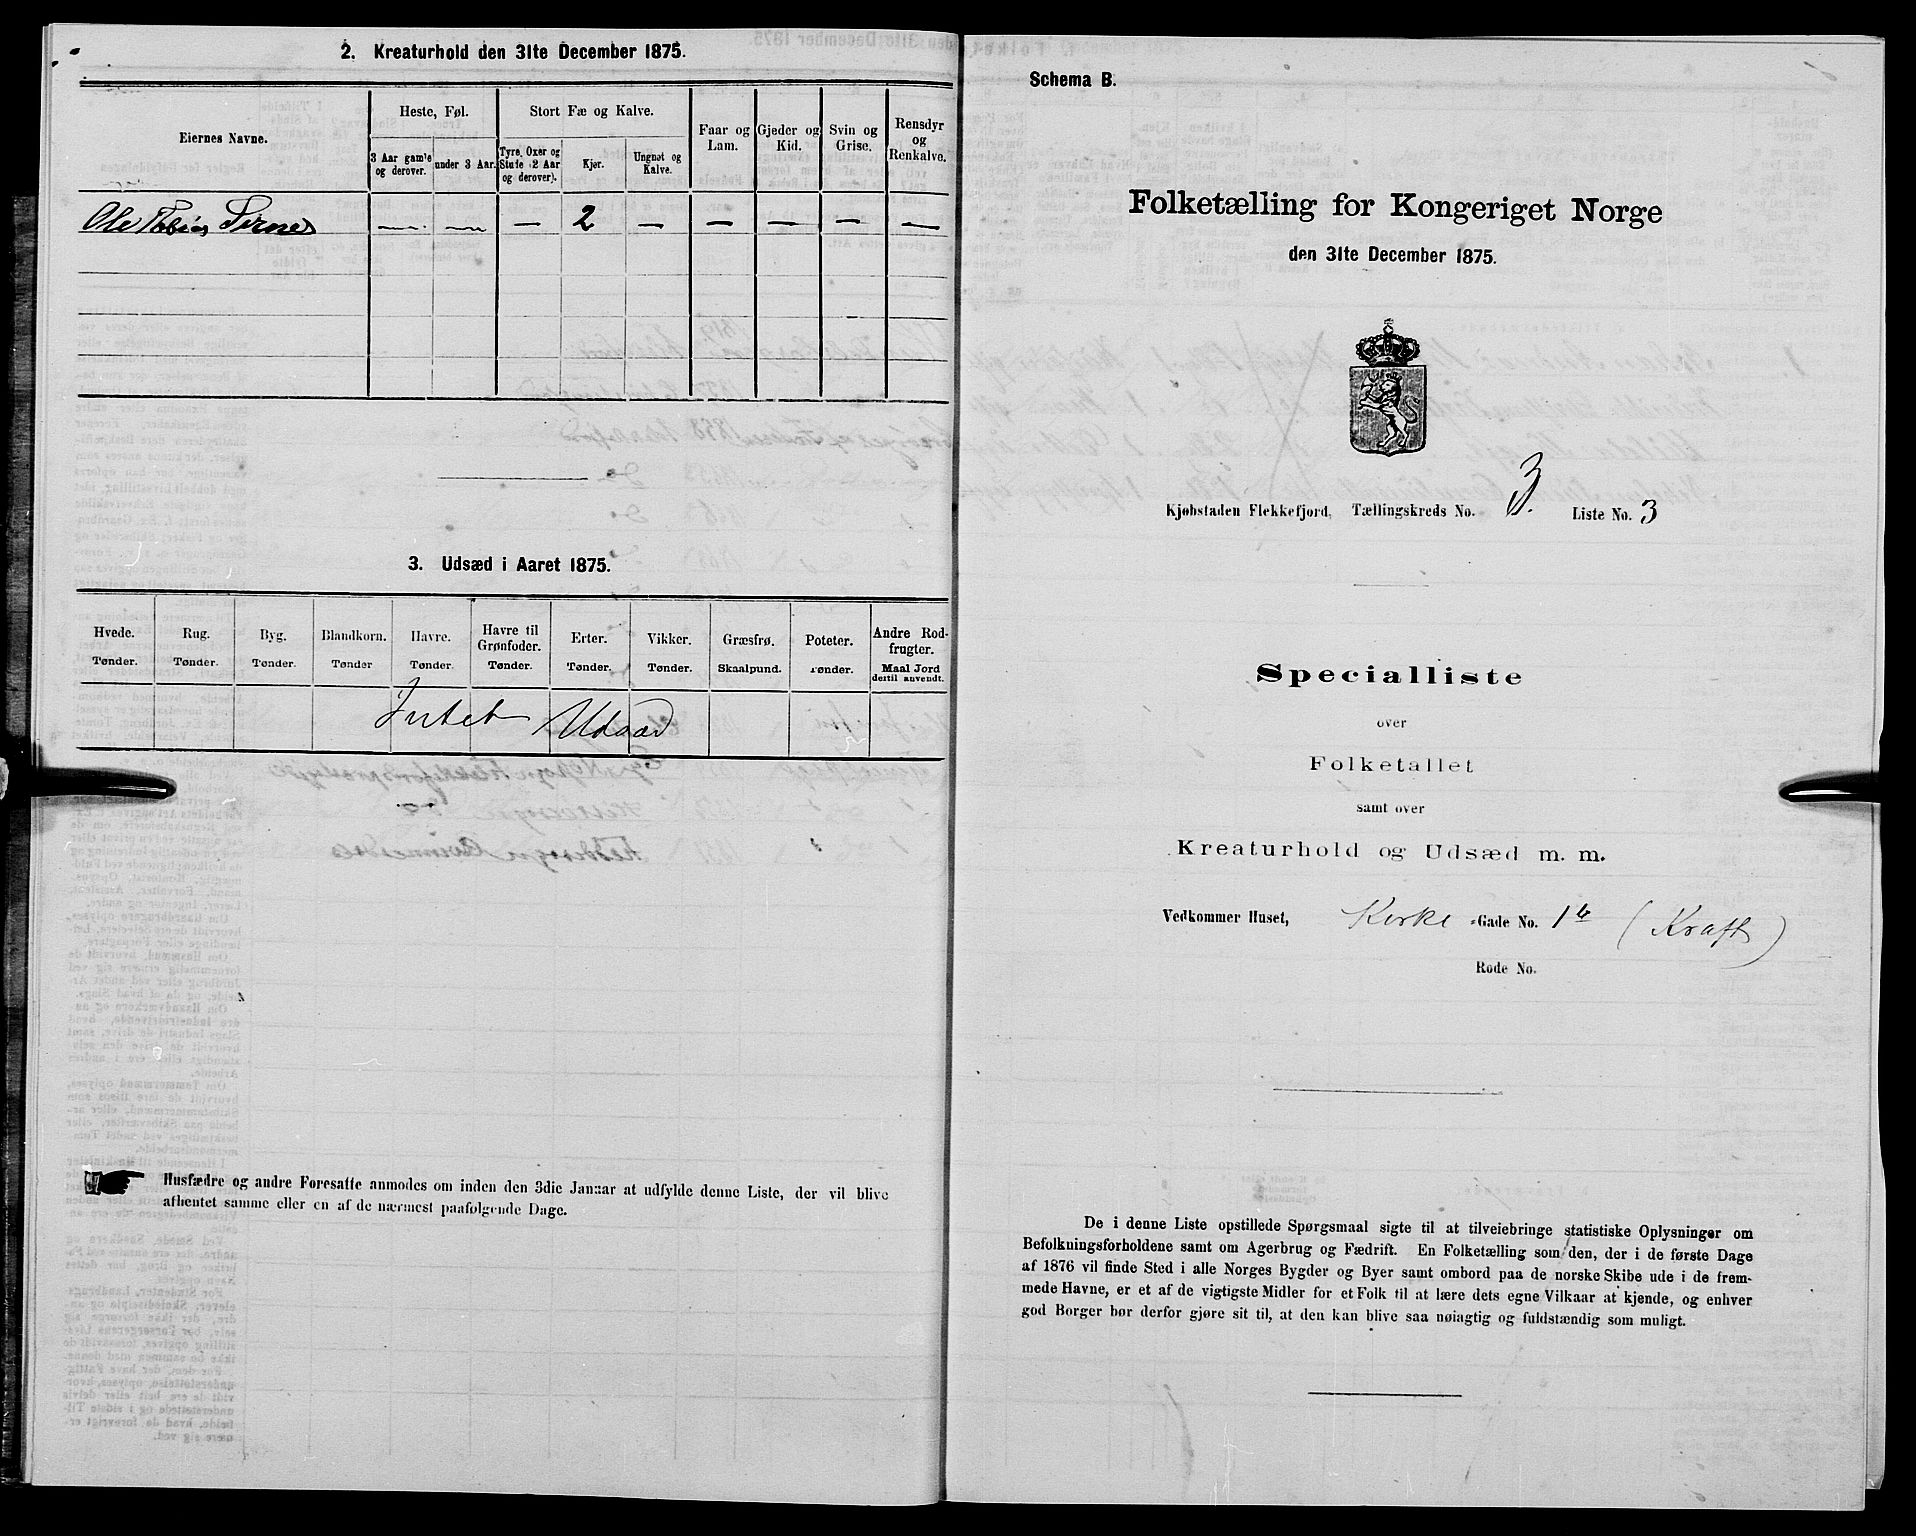 2. Kreaturhold den 31te December 1875.
Eiernes Navne.
Heste, Føl.
Stort Fæ og Kalve.
Faar og Lam.
Gjeder og Kid.
Svin og Grise.
Rensdyr og Renkalve.
3 Aar gam'e og derover.
under 3 Aar.
Tyre, Oxer og Stude (2 Aar og derover).
Kjør.
Ungnøt og Kalve.
Ole Tobias — — — 2 — — — — —
3. Udsæd i Aaret 1875.
Hvede. Rug. Byg. Blandkorn. Havre. Havre til Grønfoder. Erter. Vikker. Græsfrø. Poteter. Andre Rodfrugter.
Tønder. Tønder. Tønder. Tønder Tønder. Tønder. Tønder. Tønder. Skaalpund. Tønder. Maal Jord dertil anvendt.
Intet Udsæd
Husfædre og andre Foresatte anmodes om inden den 3die Januar at udfylde denne Liste, der vil blive
afhentet samme eller en af de nærmest paafølgende Dage.
Schema B.
Folketælling for Kongeriget Norge
den 31te December 1875.
Kjøbstaden Flekkefjord, Tællingskreds No. 3. Liste No. 3
Specialliste
over
Folketallet
samt over
Kreaturhold og Udsæd m. m.
Vedkommer Huset, Kirke -Gade No. 1b (Kraft)
Rode No.
De i denne Liste opstillede Spørgsmaal sigte til at tilveiebringe statistiske Oplysninger om
Befolkningsforholdene samt om Agerbrug og Fædrift. En Folketælling som den, der i de første Dage
af 1876 vil finde Sted i alle Norges Bygder og Byer samt ombord paa de norske Skibe ude i de frem-
mede Havne, er et af de vigtigste Midler for et Folk til at lære dets egne Vilkaar at kjende, og enhver
god Borger bør derfor gjøre sit til, at den kan blive saa nøiagtig og fuldstændig som muligt.